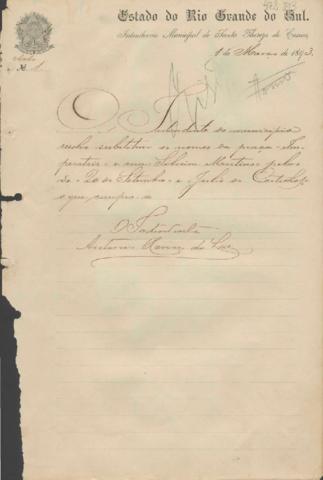 Estado do Rio Grande do Sul.
Intendencia Municipal de Santa Thereza de
1 de Março de 1893.
N. 1
O Intendente do municipio
resolve substituir os nomes da praça Im-
peratriz e rua Silveira Martins pelos
de 20 de Setembro e Julio de Castilhos
o que cumpra-se
O Intendente
Antonio Xavier da Luz